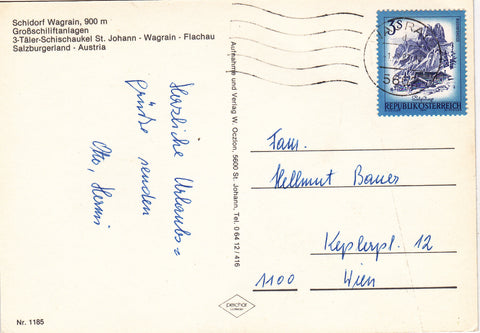 Schidorf Wagrain, 900 m
Großschiliftanlagen
3-Täler-Schischaukel St. Johann - Wagrain - Flachau
Salzburgerland - Austria
Herzliche Urlaubs=
grüße senden
Otto, Hermi
Nr. 1185
Aufnahme und Verlag W. Oczlon, 5600 St. Johann, Tel. 0 64 12 / 416
3S
REPUBLIK ÖSTERREICH
Fam.
Hellmut Bauer
Keplerpl. 12
1100 Wien